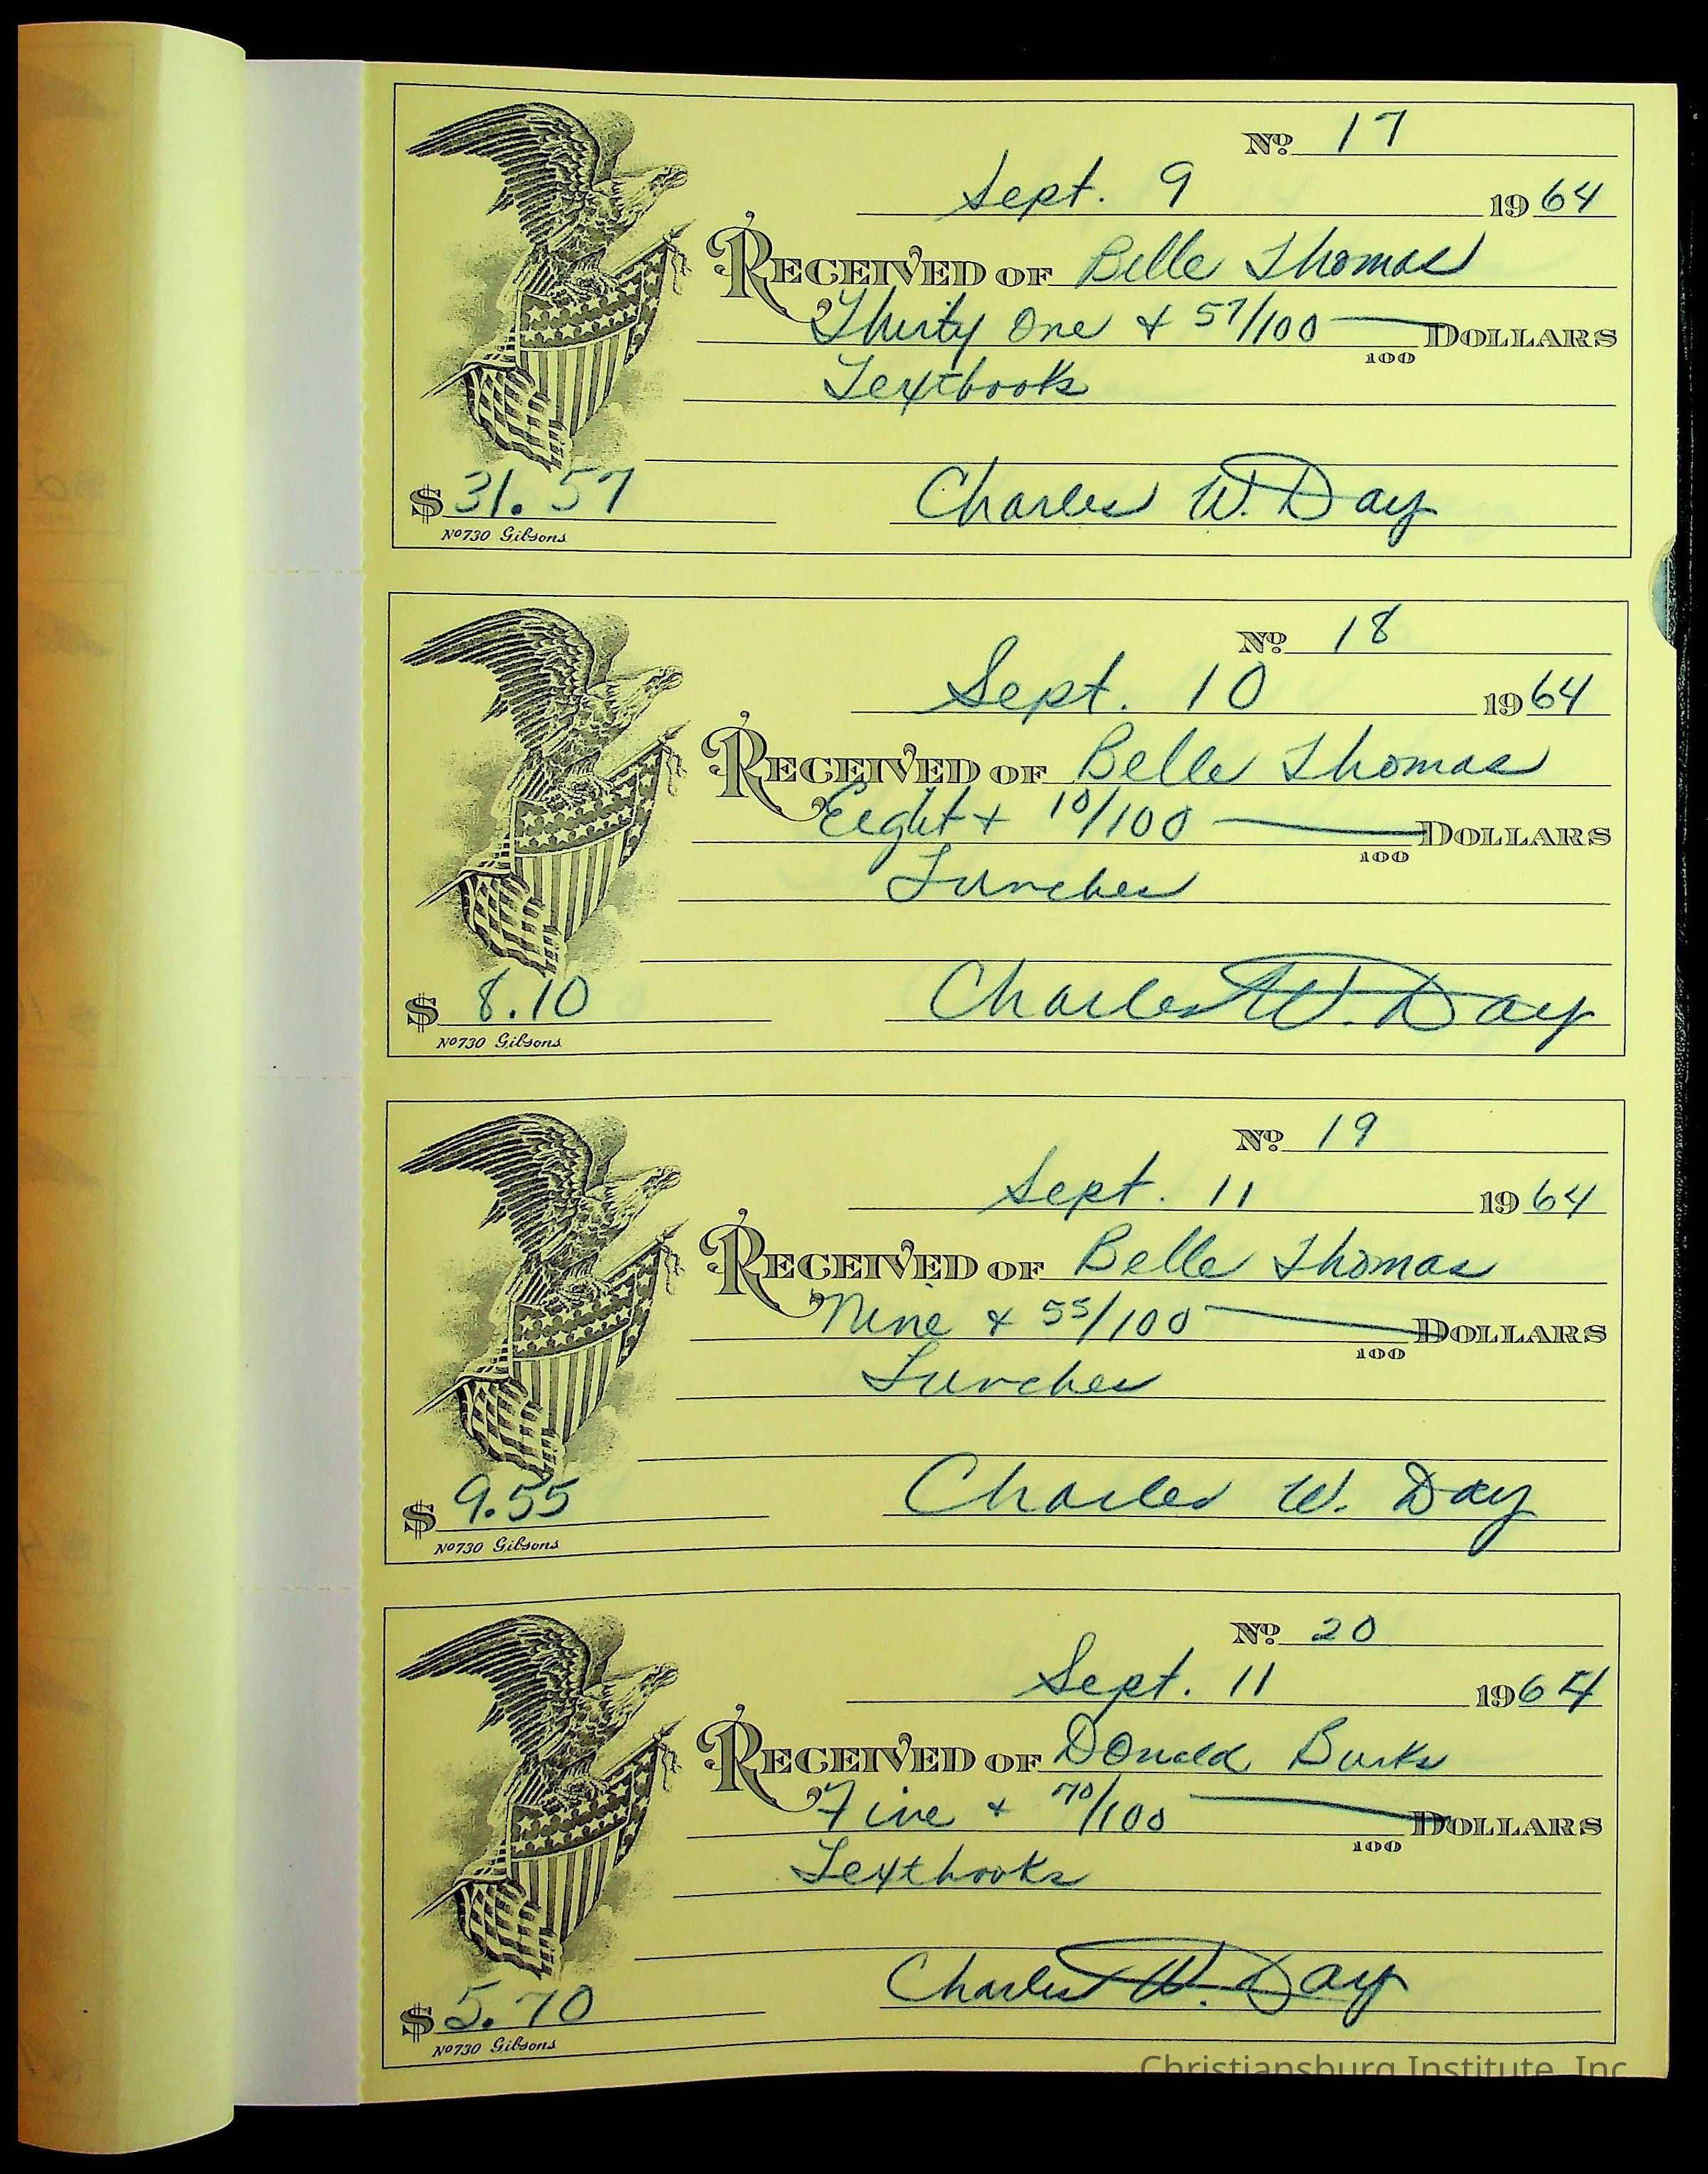 No. 17
Sept. 9 1964
RECEIVED OF Belle Thomas
Thirty One & 57/100 DOLLARS
100
Textbooks
$ 31.57 Charles W. Day
No 730 Gibsons
No. 18
Sept. 10 1964
RECEIVED OF Belle Thomas
Eight & 10/100 DOLLARS
100
Lunches
$ 8.10 Charles W. Day
No 730 Gibsons
No. 19
Sept. 11 1964
RECEIVED OF Belle Thomas
Nine & 55/100 DOLLARS
100
Lunches
$ 9.55 Charles W. Day
No 730 Gibsons
No. 20
Sept. 11 1964
RECEIVED OF Donald Burks
Five & 70/100 DOLLARS
100
Textbooks
$ 5.70 Charles W. Day
No 730 Gibsons
Christiansburg Institute, Inc.